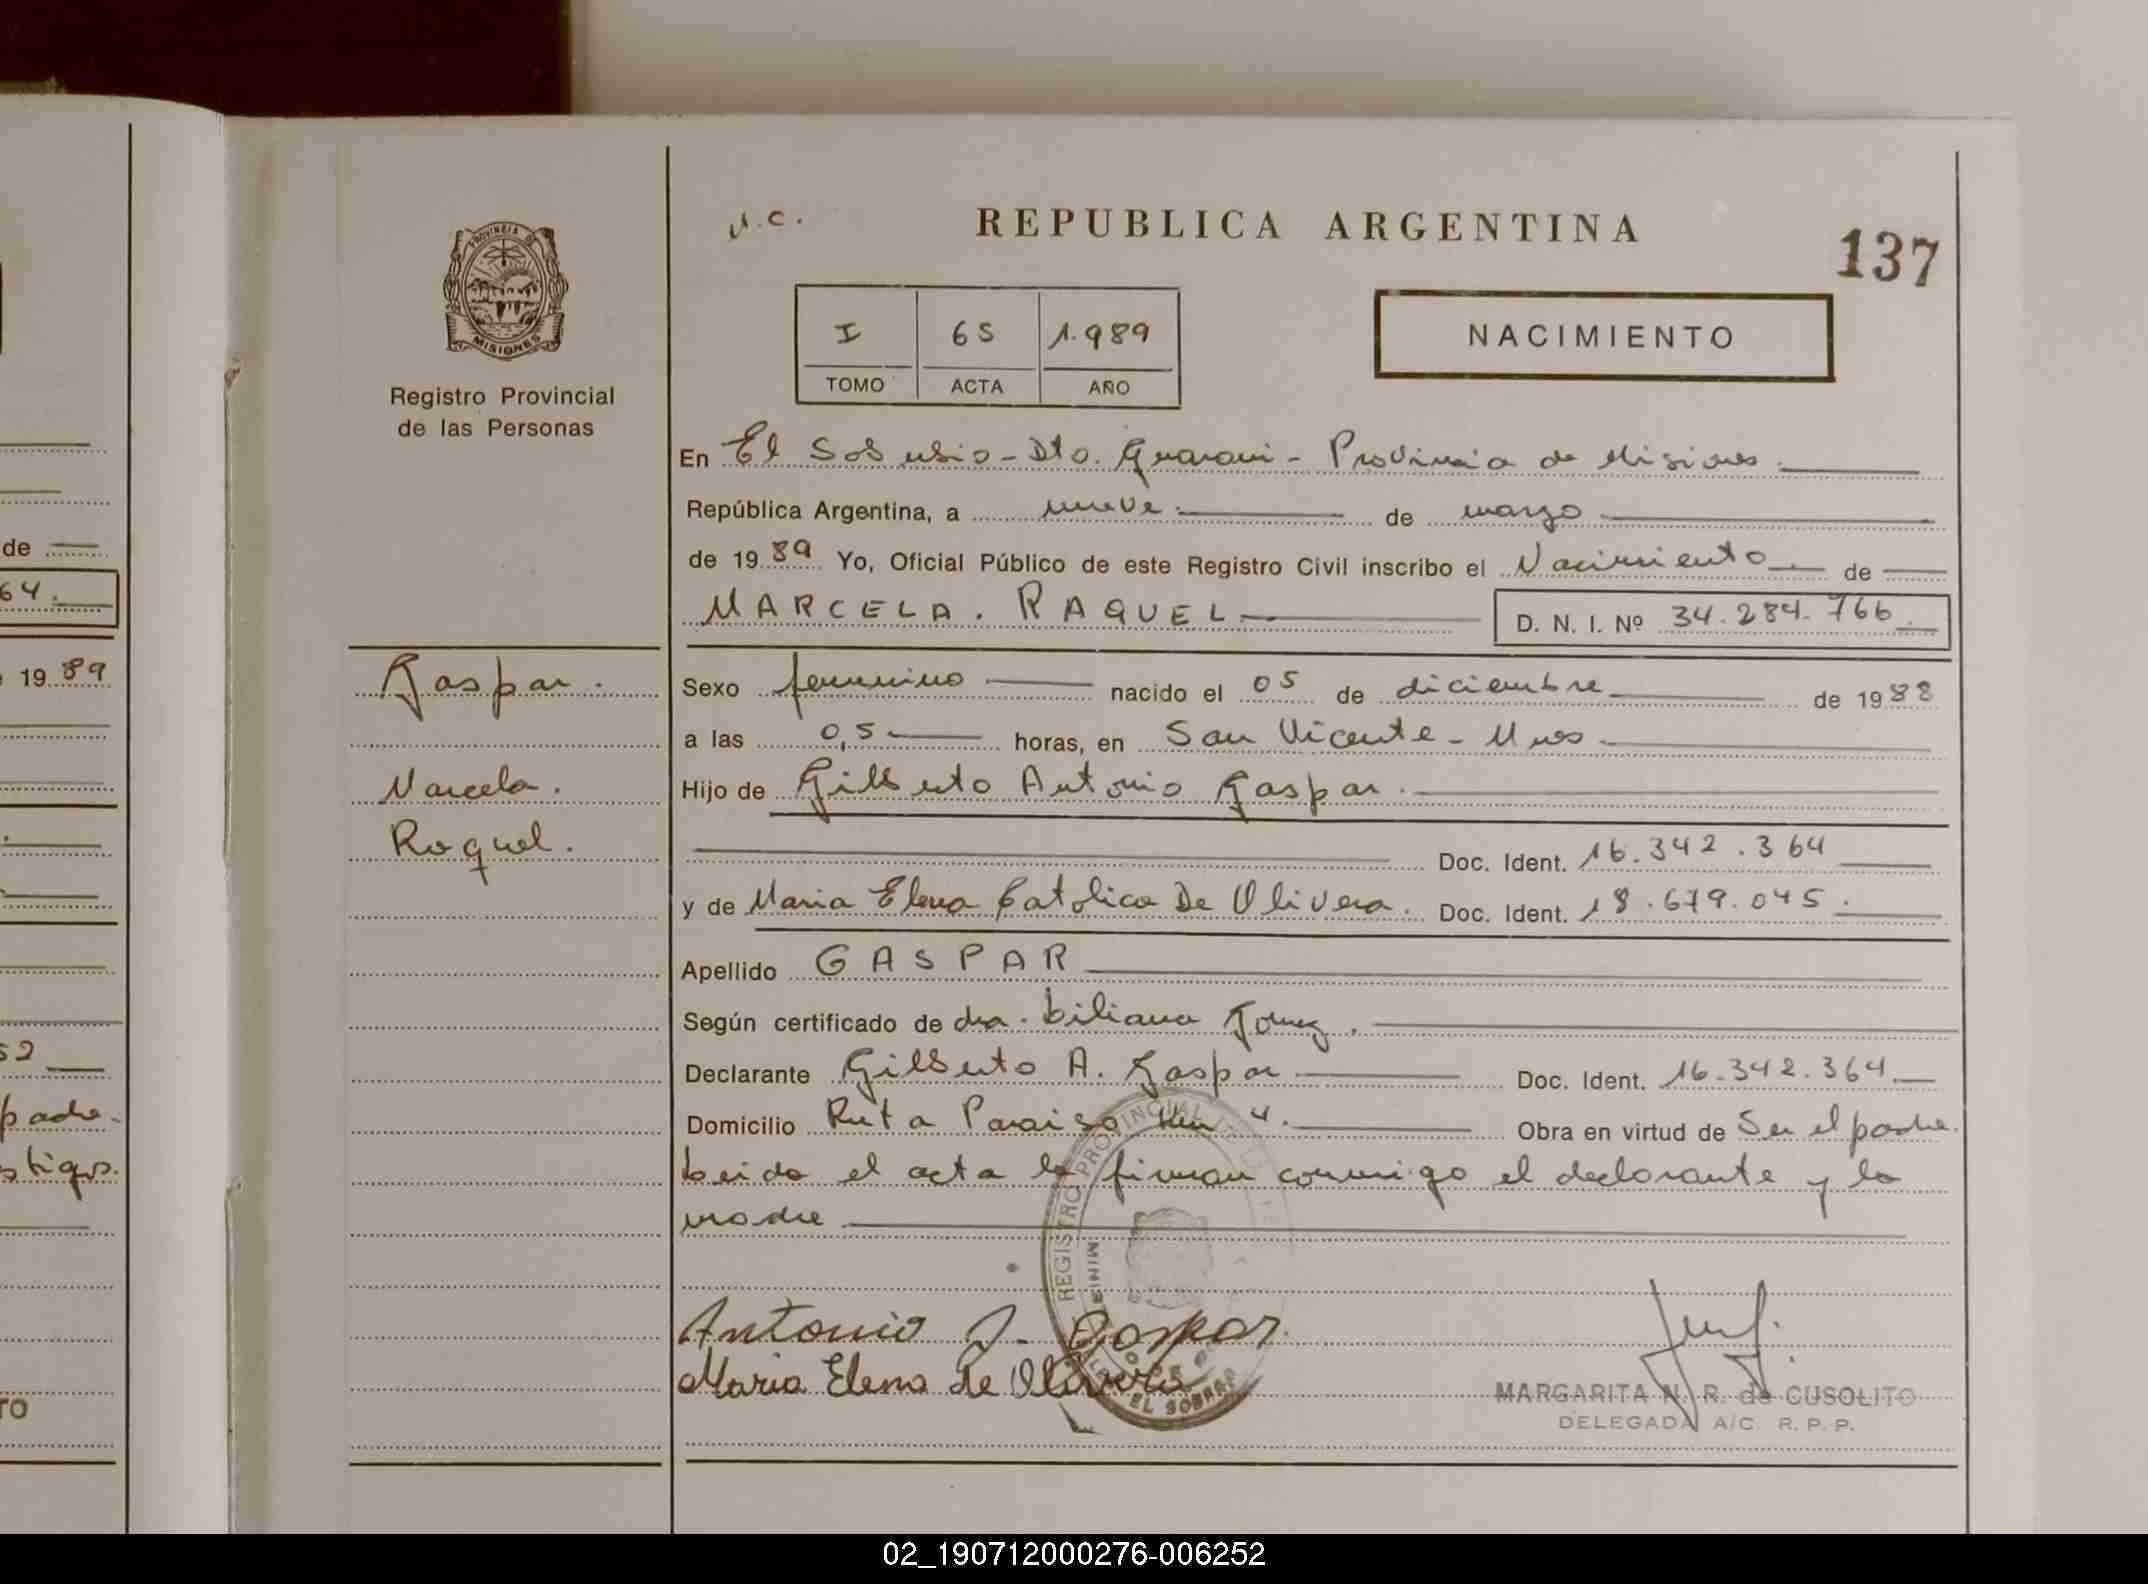 N.C.
REPUBLICA ARGENTINA
137
PROVINCIA DE
MISIONES
I 65 1.989
TOMO ACTA AÑO
NACIMIENTO
Registro Provincial
de las Personas
En El Soberbio - Dto. Guarani - Provincia de Misiones.
República Argentina, a nueve de marzo
de 1989 Yo, Oficial Público de este Registro Civil inscribo el Nacimiento de
MARCELA. RAQUEL D. N. I. Nº 34.284.766.
Gaspar.
Marcela.
Raquel.
Sexo femenino nacido el 05 de diciembre de 1988
a las 0,5 horas, en San Vicente - Mnes
Hijo de Gilberto Antonio Gaspar.
Doc. Ident. 16.342.364
y de Maria Elena Catolica De Olivera. Doc. Ident. 18.679.045.
Apellido GASPAR
Según certificado de dra. Liliana Gomez.
Declarante Gilberto A. Gaspar Doc. Ident. 16.342.364
Domicilio Ruta Paraiso Km 4. Obra en virtud de Ser el padre.
Leida el acta la firman conmigo el declarante y la
madre
REGISTRO PROVINCIAL
EL SOBERBIO
Antonio J. Gaspar.
Maria Elena de Olivera
MARGARITA N. R. de CUSOLITO
DELEGADA A/C. R. P. P.
de
64.
19 89
52
padre.
stigos.
TO
02_190712000276-006252